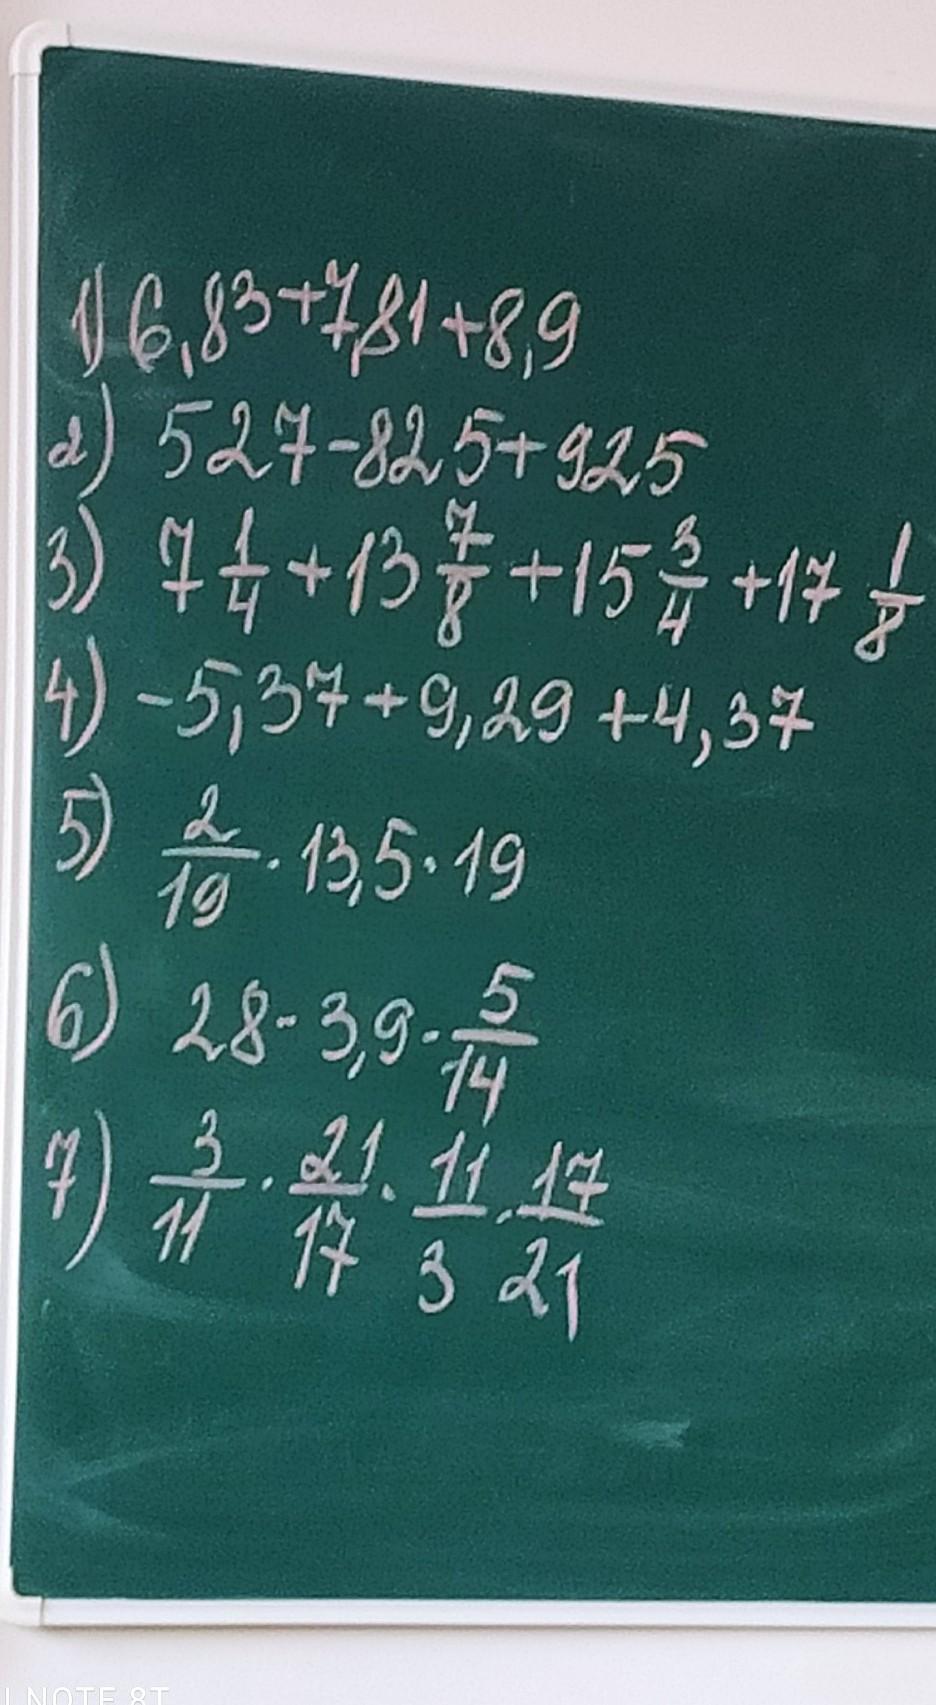 1) 6,83+7,81+8,9
2) 527-825+925
3) 7 1/4 + 13 7/8 + 15 3/4 + 17 1/8
4) -5,37+9,29+4,37
5) 2/19 · 13,5 · 19
6) 28 · 3,9 · 5/14
7) 3/11 · 21/17 · 11/3 · 17/21
NOTE 8T